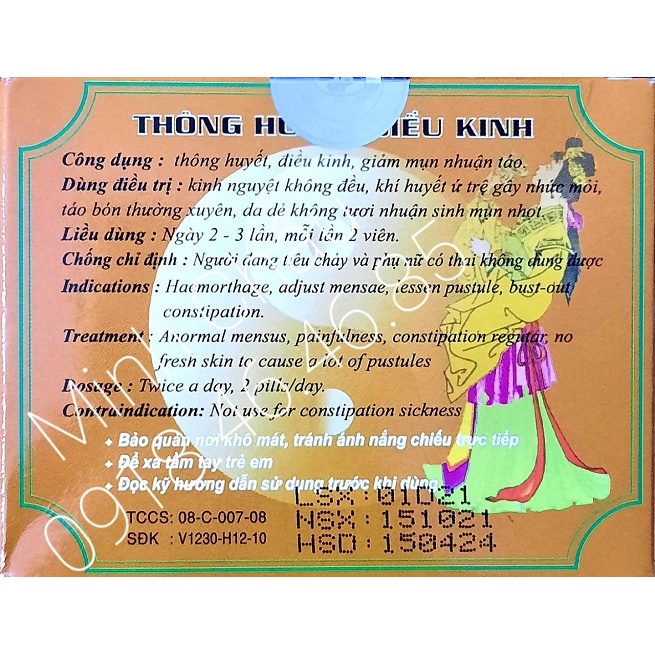 THÔNG HU ĐIỀU KINH
Công dụng : thông huyết, điều kinh, giảm mụn nhuận táo.
Dùng điều trị : kinh nguyệt không đều, khí huyết ứ trệ gây nhức mỏi,
táo bón thường xuyên, da dẻ không tươi nhuận sinh mụn nhọt.
Liều dùng : Ngày 2 - 3 lần, mỗi lần 2 viên.
Chống chỉ định : Người đang tiêu chảy và phụ nữ có thai không dùng được
Indications : Haemorthage, adjust mensae, lessen pustule, bust-out,
constipation.
Treatment : Anormal mensus, painfulness, constipation regular, no
fresh skin to cause a lot of pustules
Dosage : Twice a day, 2 pills/day.
Contraindication: Not use for constipation sickness
Bảo quản nơi khô mát, tránh ánh nắng chiếu trực tiếp
Để xa tầm tay trẻ em
Đọc kỹ hướng dẫn sử dụng trước khi dùng
TCCS: 08-C-007-08
SĐK : V1230-H12-10
LSX:01D21
NSX:151021
HSD:150424